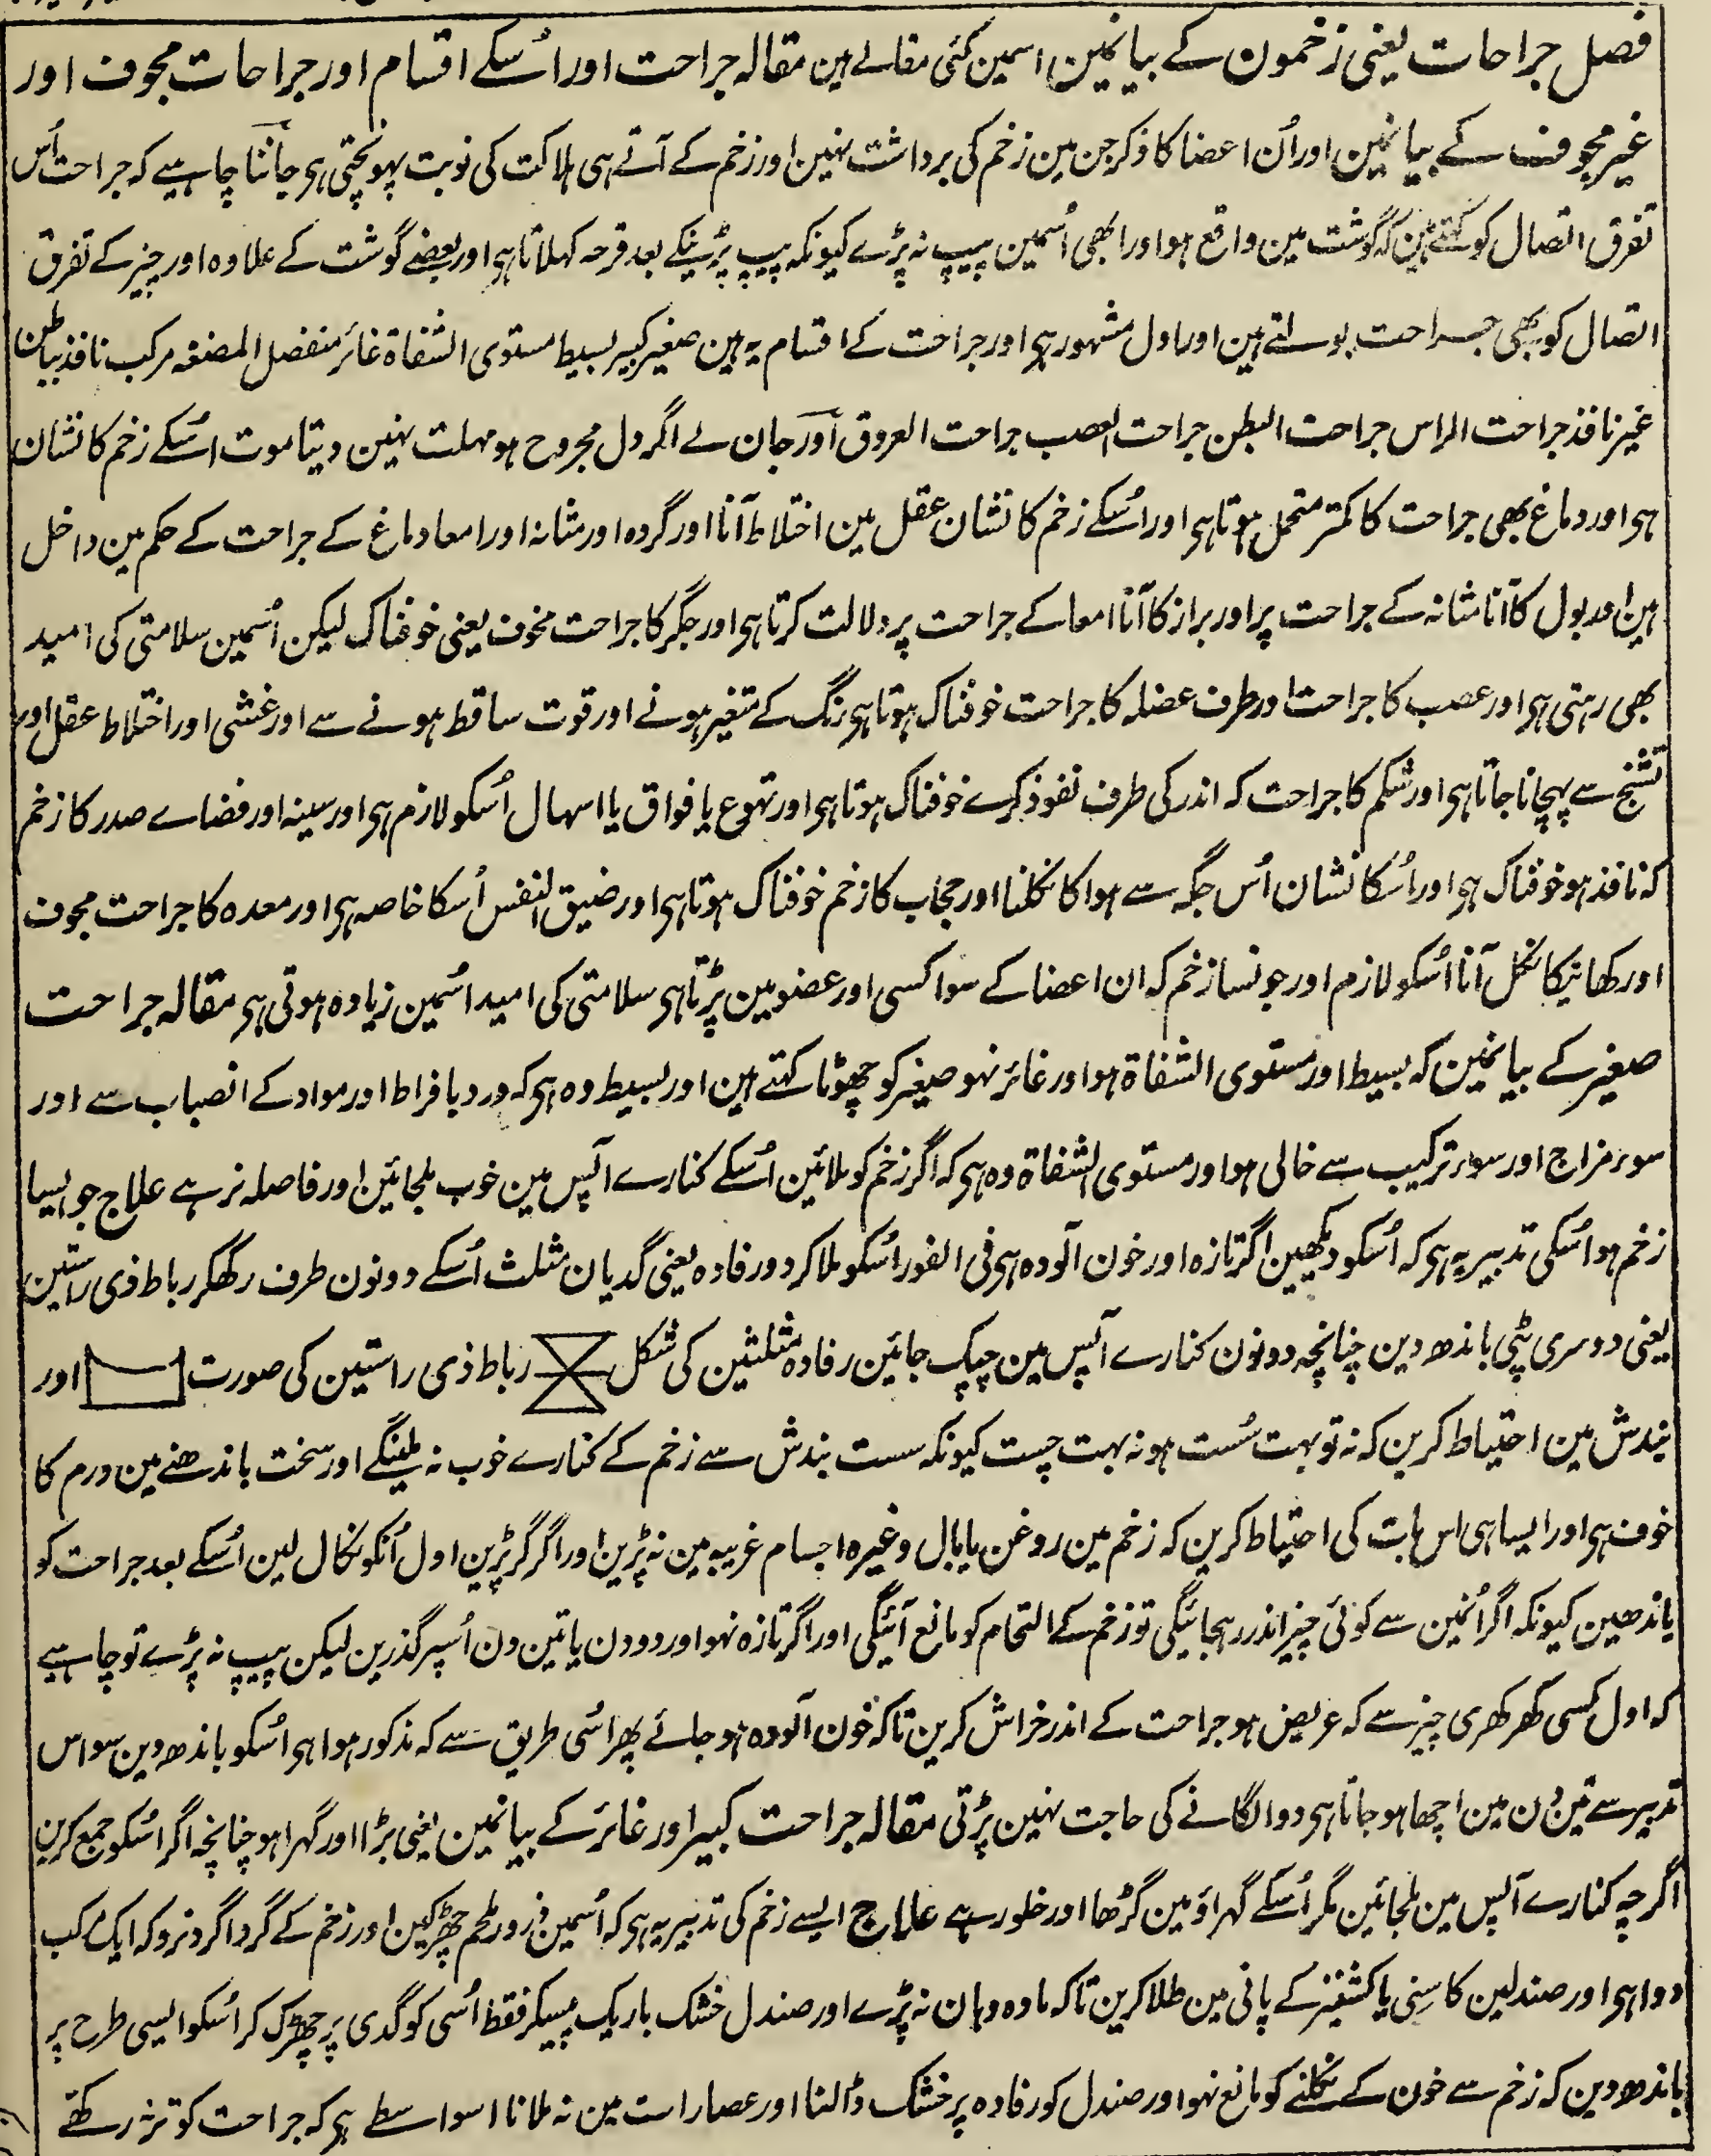 فصل جراحات یعنی زخمون کے بیانمین اسمین کئی مقالے ہین مقالہ جراحت اور اُسکے اقسام اور جراحات مجوف اور
غیر مجوف کے بیانمین اور اُن اعضا کا ذکر جن مین زخم کی برداشت نہین اور زخم کے آتے ہی ہلاکت کی نوبت پہونچتی ہی جاننا چاہیے کہ جراحت اُس
تفرق اتصال کو کہتے ہین کہ گوشت مین واقع ہو اور ابھی اُسمین پیپ نہ پڑے کیونکہ پیپ پڑنیکے بعد قرحہ کہلاتا ہی اور بعضے گوشت کے علاوہ اور چیز کے تفرق
اتصال کو بھی جراحت بولتے ہین اور اول مشہور ہی اور جراحت کے اقسام یہ ہین صغیر کبیر بسیط مستوی الشفاۃ غائر منفصل المضغہ مرکب نافذ بباطن
غیر نافذ جراحت الراس جراحت البطن جراحت العصب جراحت العروق اور جان لے اگر دل مجروح ہو مہلت نہین دیتا موت اسکے زخم کا نشان
ہی اور دماغ بھی جراحت کا کمتر متحمل ہوتا ہی اور اُسکے زخم کا نشان عقل مین اختلاط آنا اور گردہ اور مثانہ اور امعا دماغ کے جراحت کے حکم مین داخل
ہین اور بول کا آنا مثانہ کے جراحت پر اور براز کا آنا امعا کے جراحت پر دلالت کرتا ہی اور جگر کا جراحت مخوف یعنی خوفناک لیکن اُسمین سلامتی کی امید
بھی رہتی ہی اور عصب کا جراحت اور طرف عضلہ کا جراحت خوفناک ہوتا ہی رنگ کے متغیر ہونے اور قوت ساقط ہونے سے اور غشی اور اختلاط عقل اور
تشنج سے پہچانا جاتا ہی اور شکم کا جراحت کہ اندر کی طرف نفوذ کرے خوفناک ہوتا ہی اور تہوع یا فواق یا اسہال اُسکو لازم ہی اور سینہ اور فضاے صدر کا زخم
کہ نافذ ہو خوفناک ہی اور اُسکا نشان اُس جگہ سے ہوا کا نکلنا اور حجاب کا زخم خوفناک ہوتا ہی اور ضیق النفس اُسکا خاصہ ہی اور معدہ کا جراحت مجوف
اور کھانیکا نکل آنا اُسکو لازم اور جونسا زخم کہ ان اعضا کے سوا کسی اور عضو مین پڑتا ہی سلامتی کی امید اُسمین زیادہ ہوتی ہی مقالہ جراحت
صغیر کے بیانمین کہ بسیط اور مستوی الشفاۃ ہو اور غائر نہو صغیر کو چھوٹا کہتے ہین اور بسیط وہ ہی کہ درد بافراط اور مواد کے انصباب سے اور
سوء مزاج اور سوء ترکیب سے خالی ہو اور مستوی الشفاۃ وہ ہی کہ اگر زخم کو ملائین اُسکے کنارے آپس مین خوب ملجائین اور فاصلہ نرہے علاج جو ایسا
زخم ہو اُسکی تدبیر یہ ہی کہ اُسکو دیکھین اگر تازہ اور خون آلودہ ہی فی الفور اُسکو ملا کر دو رفادہ یعنی گدیان مثلث اُسکے دونون طرف رکھکر رباط ذی راستین
یعنی دوسری پٹی باندھ دین چنانچہ دونون کنارے آپس مین چپک جائین رفادہ مثلثین کی شکل رباط ذی راستین کی صورت اور
بندش مین احتیاط کرین کہ نہ تو بہت سُست ہو نہ بہت چست کیونکہ سست بندش سے زخم کے کنارے خوب نہ ملینگے اور سخت باندھنے مین ورم کا
خوف ہی اور ایسا ہی اس بات کی احتیاط کرین کہ زخم مین روغن یا بال وغیرہ اجسام غریبہ مین نہ پڑین اور اگر پڑین اول اُنکو نکال لین اُسکے بعد جراحت کو
باندھین کیونکہ اگر اُنمین سے کوئی چیز اندر رہجائیگی تو زخم کے التحام کو مانع آئیگی اور اگر تازہ نہو اور دو دن یا تین دن اُسپر گذرین لیکن پیپ نہ پڑے تو چاہیے
کہ اول کسی کھرکھری چیز سے کہ عریض ہو جراحت کے اندر خراش کرین تاکہ خون آلودہ ہو جائے پھر اُسی طریق سے کہ مذکور ہوا ہی اُسکو باندھ دین سو اس
تدبیر سے تین دن مین اچھا ہو جاتا ہی دوا لگانے کی حاجت نہین پڑتی مقالہ جراحت کبیر اور غائر کے بیانمین یعنی بڑا اور گہرا ہو چنانچہ اگر اُسکو جمع کرین
اگرچہ کنارے آپس مین ملجائین مگر اُسکے گہراؤ مین گڑھا اور خلو رہے علاج ایسے زخم کی تدبیر یہ ہی کہ اُسمین ذرور ملحم چھڑکین اور زخم کے گرداگرد نروکہ ایک مرکب
دوا ہی اور صندلین کاسنی یا کشنیز کے پانی مین طلا کرین تاکہ مادہ وہان نہ پڑے اور صندل خشک باریک پیسکر فقط اُسی کو گدی پر چھڑک کر اُسکو ایسی طرح پر
باندھ دین کہ زخم سے خون کے نکلنے کو مانع نہو اور صندل کو رفادہ پر خشک ڈالنا اور عصارات مین نہ ملانا اسواسطے ہی کہ جراحت کو تر رکھتے